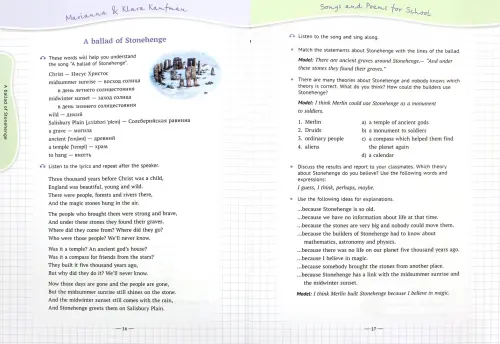 Marianna & Klara Kaufman
A ballad of Stonehenge
These words will help you understand
the song "A ballad of Stonehenge".
Christ — Иисус Христос
midsummer sunrise — восход солнца
в день летнего солнцестояния
midwinter sunset — заход солнца
в день зимнего солнцестояния
wild — дикий
Salisbury Plain — Солсберийская равнина
a grave — могила
ancient — древний
a temple — храм
to hang — висеть
Listen to the lyrics and repeat after the speaker.
Three thousand years before Christ was a child,
England was beautiful, young and wild.
There were people, forests and rivers there,
And the magic stones hung in the air.
The people who brought them were strong and brave,
And under these stones they found their graves.
Where did they come from? Where did they go?
Who were those people? We'll never know.
Was it a temple? An ancient god's house?
Was it a compass for friends from the stars?
They built it five thousand years ago,
But why did they do it? We'll never know.
Now those days are gone and the people are gone,
But the midsummer sunrise still shines on the stone.
And the midwinter sunset still comes with the rain,
And Stonehenge greets them on Salisbury Plain.
— 16 —
A ballad of Stonehenge
Songs and Poems for School
Listen to the song and sing along.
Match the statements about Stonehenge with the lines of the ballad.
Model: There are ancient graves around Stonehenge.— "And under
these stones they found their graves."
There are many theories about Stonehenge and nobody knows which
theory is correct. What do you think? How could the builders use
Stonehenge?
Model: I think Merlin could use Stonehenge as a monument
to soldiers.
1. Merlin a) a temple of ancient gods
2. Druids b) a monument to soldiers
3. ordinary people c) a compass which helped them
4. aliens find the planet again
d) a calendar
Discuss the results and report to your classmates. Which theory
about Stonehenge do you believe? Use the following words and
expressions:
I guess, I think, perhaps, maybe.
Use the following ideas for explanations.
...because Stonehenge is so old.
...because we have no information about life at that time.
...because the stones are very big and nobody could move them.
...because the builders of Stonehenge had to know about
mathematics, astronomy and physics.
...because there was no life on our planet five thousand years ago.
...because I believe in magic.
...because somebody brought the stones from another place.
...because Stonehenge has a link with the midsummer sunrise and
the midwinter sunset.
Model: I think Merlin built Stonehenge because I believe in magic.
— 17 —